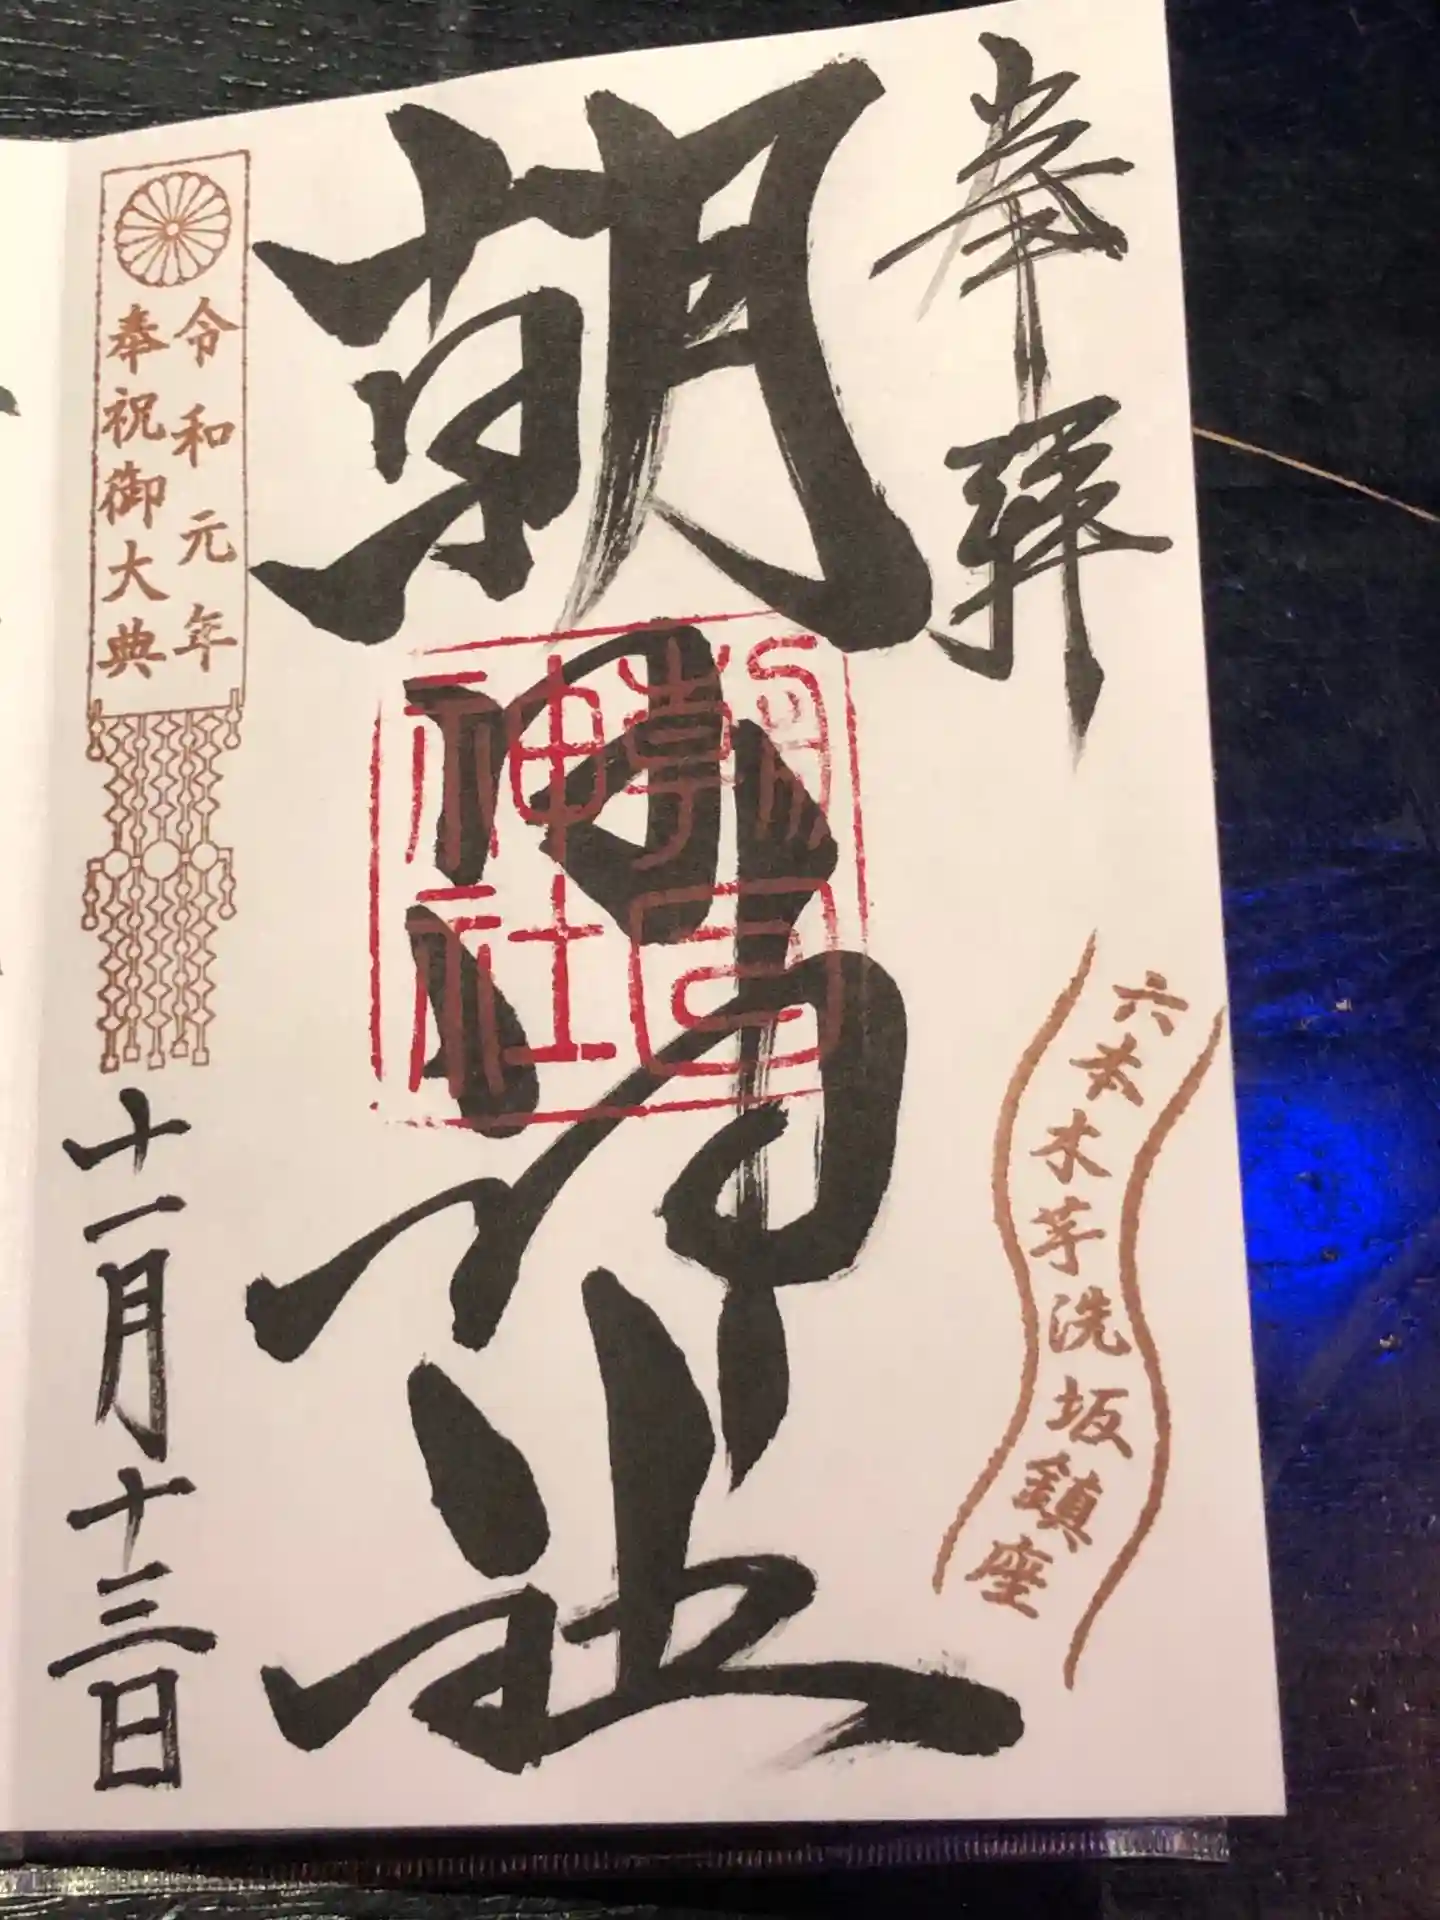 奉拝
六本木芋洗坂鎮座
朝日神社
令和元年
奉祝御大典
十一月十三日